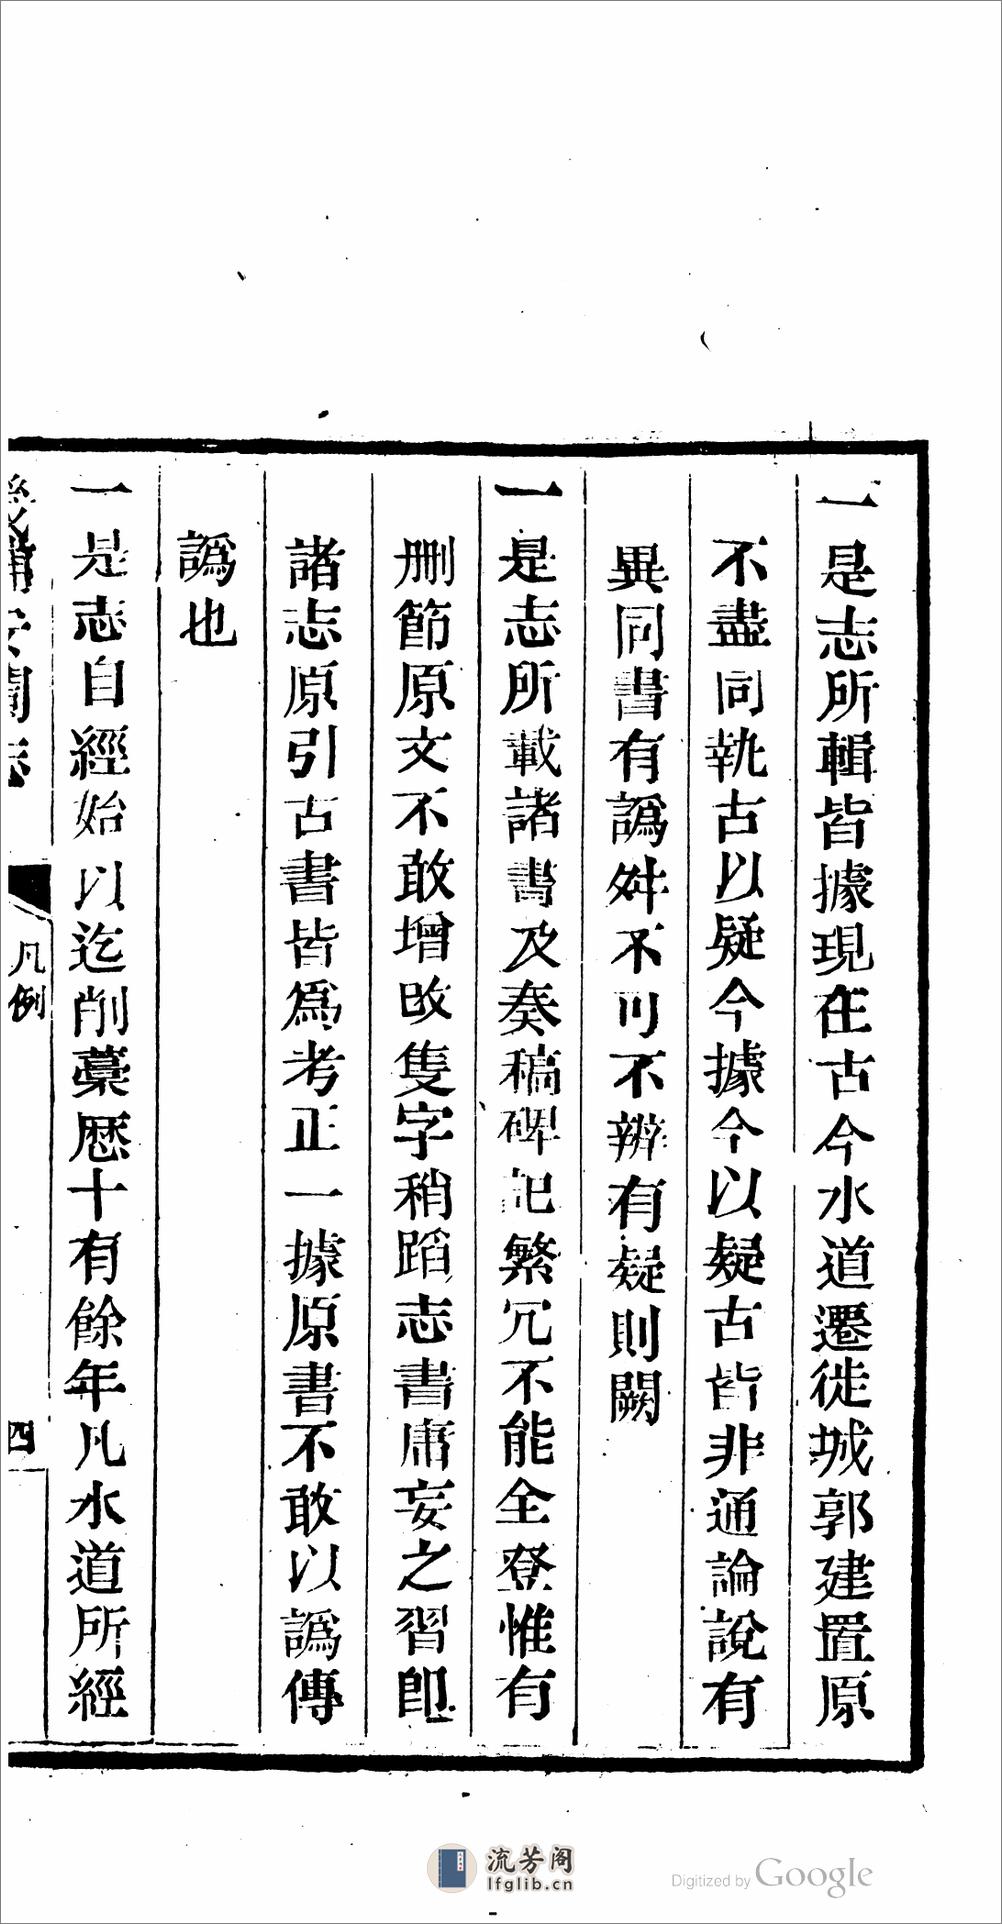 一是志所輯皆據現在古今水道遷徙城郭建置原
不盡同執古以疑今據今以疑古皆非通論說有
異同書有譌舛不可不辨有疑則闕
一是志所載諸書及奏稿碑記繁冗不能全登惟有
刪節原文不敢增改隻字稍蹈志書庸妄之習卽
諸志原引古書皆爲考正一據原書不敢以譌傳
譌也
一是志自經始以迄削藁歷十有餘年凡水道所經
凡例
四
流芳阁
lfglib.cn
Digitized by Google